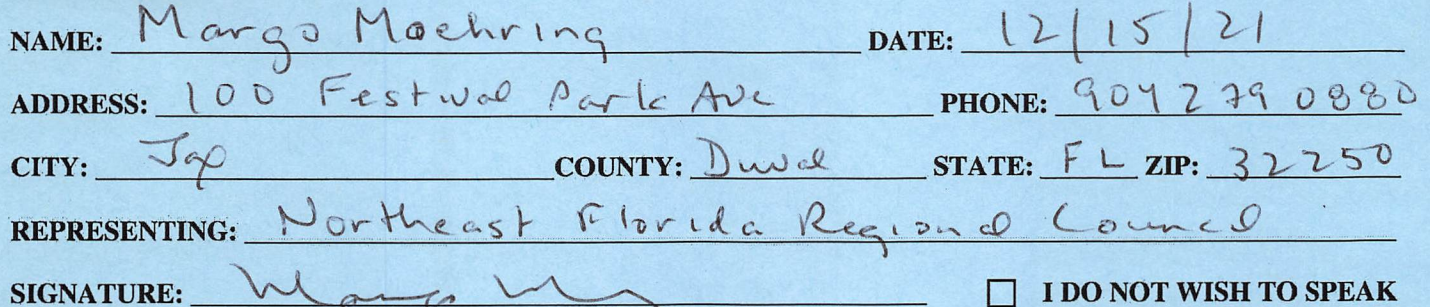 NAME: Margo Moehring DATE: 12/15/21
ADDRESS: 100 Festival Park Ave PHONE: 904 279 0880
CITY: Jax COUNTY: Duval STATE: FL ZIP: 32250
REPRESENTING: Northeast Florida Regional Council
SIGNATURE: ☐ I DO NOT WISH TO SPEAK